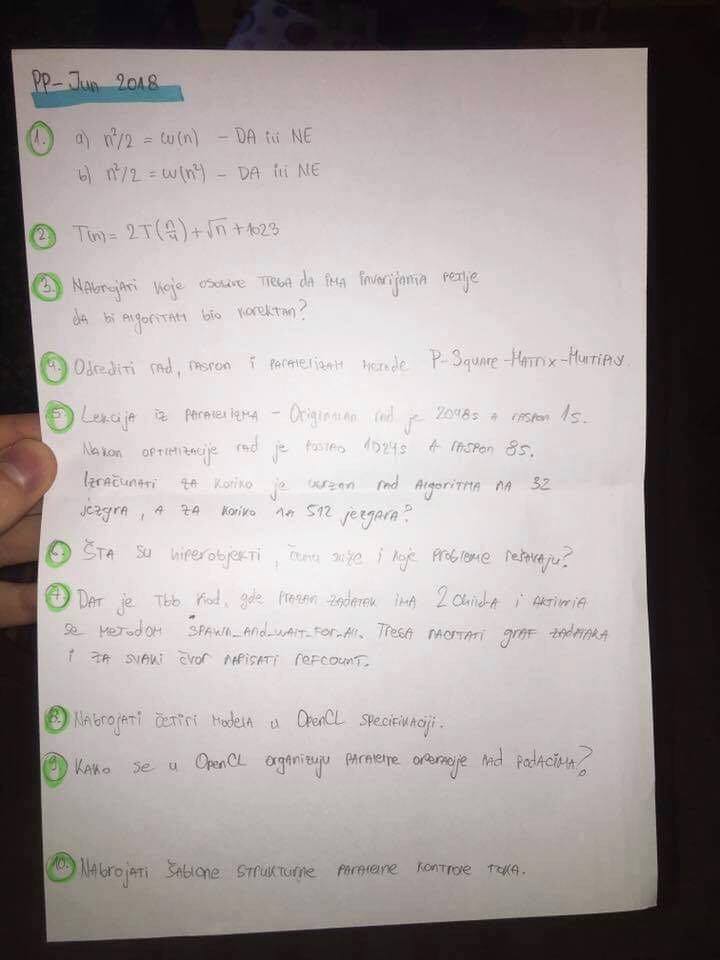 PP-Jun 2018
1. a) n²/2 = ω(n) - DA ili NE
b) n²/2 = ω(n²) - DA ili NE
2. T(n) = 2T(n/4) + √n + 1023
3. Nabrojati koje osobine treba da ima invarijanta petlje
da bi algoritam bio korektan?
4. Odrediti rad, raspon i paralelizam metode P-Square-Matrix-Multiply.
5. Lekcija iz paralelizma - Originalan rad je 2048s a raspon 1s.
Nakon optimizacije rad je postao 1024s a raspon 8s.
Izračunati za koliko je ubrzan rad algoritma na 32
jezgra, a za koliko na 512 jezgara?
6. Šta su hiperobjekti, čemu služe i koje probleme rešavaju?
7. Dat je Tbb kod, gde prazan zadatak ima 2 child-a i
se metodom spawn_and_wait_for_all. Treba nacrtati graf zadataka
i za svaki čvor napisati refcount.
8. Nabrojati četiri modela u OpenCL specifikaciji.
9. Kako se u OpenCL organizuju paralelne operacije nad podacima?
10. Nabrojati šablone strukturne paralelne kontrole toka.